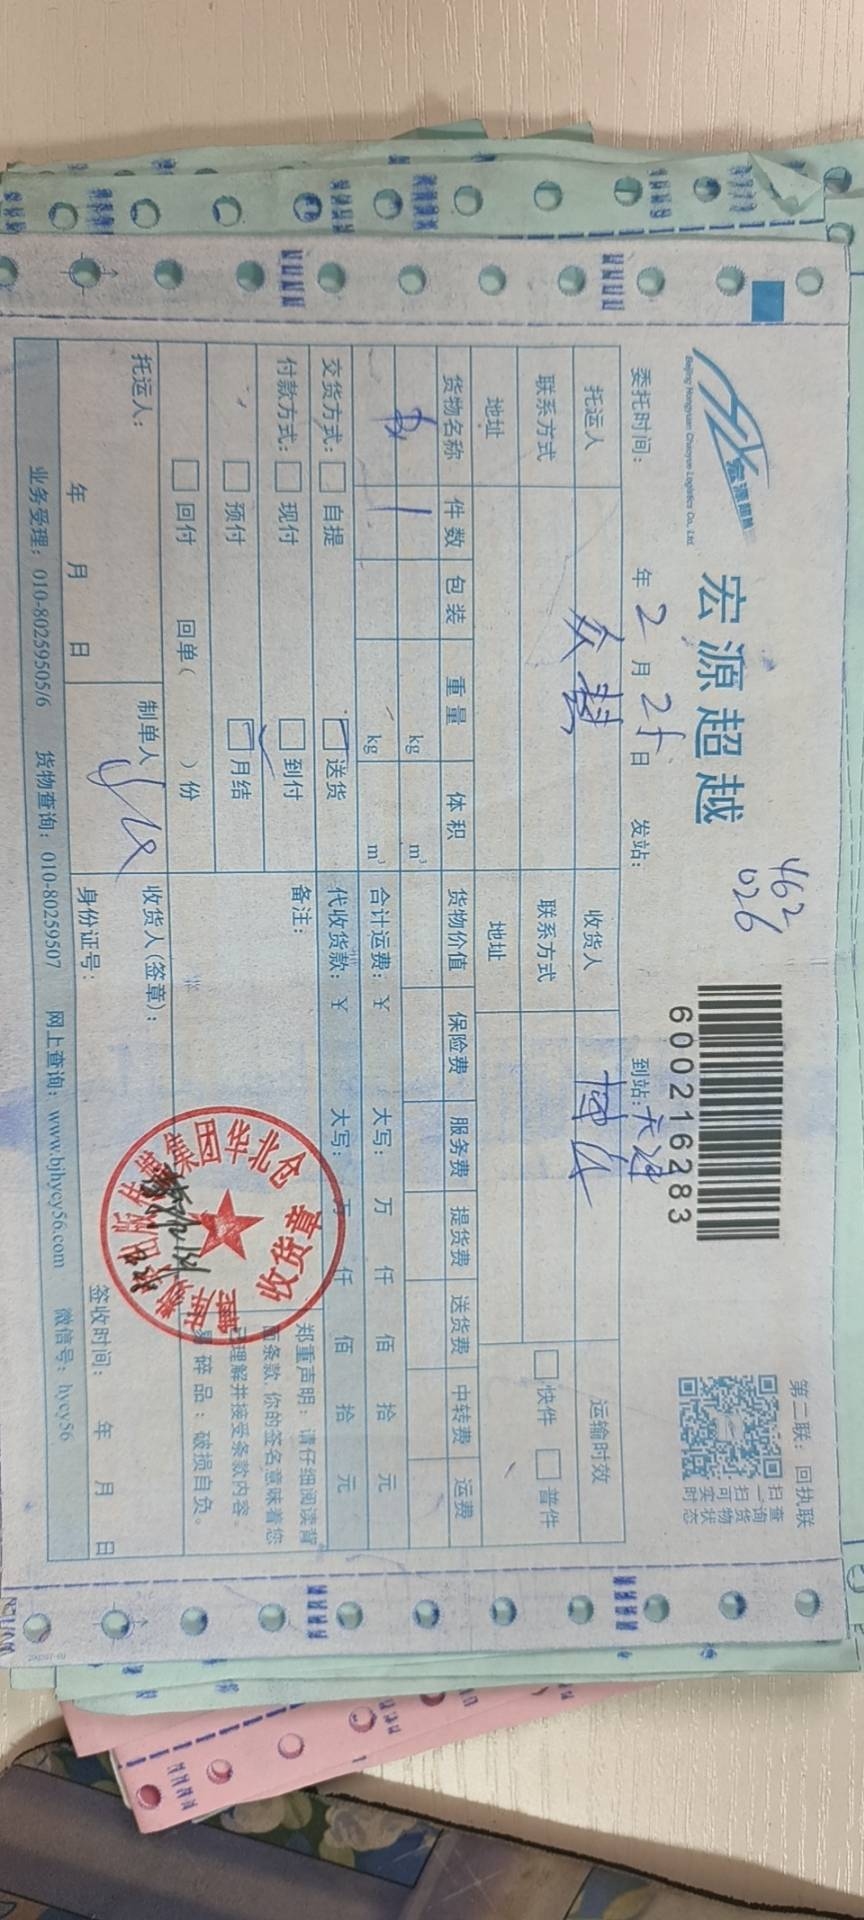 宏源超越
宏源超越
Beijing Hongyuan Chaoyue Logistics Co., Ltd
462
026
600216283
第二联：回执联
扫一扫 查询货物实时状态
委托时间： 年 2 月 25 日 发站： 到站：天津
托运人 众慧 收货人 运输时效
联系方式 联系方式 快件 普件
地址 地址
货物名称 件数 包装 重量 体积 货物价值 保险费 服务费 提货费 送货费 中转费 运费
书 1 kg m³
kg m³ 合计运费：￥ 大写： 万 仟 佰 拾 元
交货方式： 自提 送货 代收货款：￥ 大写： 万 仟 佰 拾 元
付款方式： 现付 到付 备注：
预付 月结
回付 回单（ ）份
郑重声明：请仔细阅读背
面条款，你的签名意味着您
已理解并接受条款内容。
易碎品：破损自负。
托运人： 制单人 收货人（签章）：
年 月 日 身份证号： 签收时间： 年 月 日
集团华北仓
收货章
业务受理：010-80259505/6 货物查询：010-80259507 网上查询：www.bjhycy56.com 微信号：hycy56